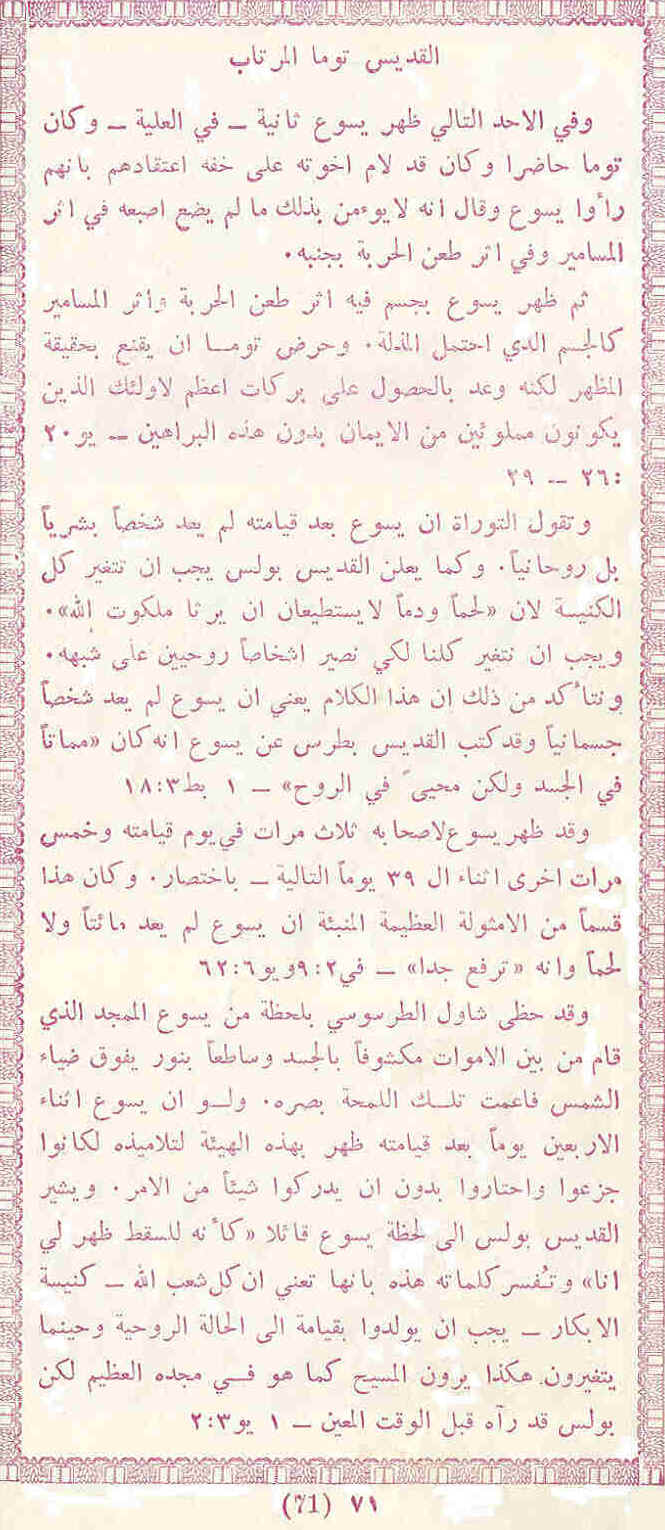 القديس توما المرتاب
وفي الاحد التالي ظهر يسوع ثانية ــ في العلية ــ وكان
توما حاضرا وكان قد لام اخوته على خفه اعتقادهم بانهم
رأوا يسوع وقال انه لا يوءمن بذلك ما لم يضع اصبعه في اثر
المسامير وفي اثر طعن الحربة بجنبه.
ثم ظهر يسوع بجسم فيه اثر طعن الحربة واثر المسامير
كالجسم الذي احتمل المذلة. وحرض توما ان يقنع بحقيقة
المظهر لكنه وعد بالحصول على بركات اعظم لاولئك الذين
يكونون مملوئين من الايمان بدون هذه البراهين ــ يو٢٠
:٢٦ ــ ٢٩
وتقول التوراة ان يسوع بعد قيامته لم يعد شخصاً بشرياً
بل روحانياً. وكما يعلن القديس بولس يجب ان تتغير كل
الكنيسة لان «لحماً ودماً لا يستطيعان ان يرثا ملكوت الله».
ويجب ان نتغير كلنا لكي نصير اشخاصاً روحيين على شبهه.
ونتأكد من ذلك ان هذا الكلام يعني ان يسوع لم يعد شخصاً
جسمانياً وقد كتب القديس بطرس عن يسوع انه كان «مماتاً
في الجسد ولكن محيىً في الروح» ــ ١ بط٣:١٨
وقد ظهر يسوع لاصحابه ثلاث مرات في يوم قيامته وخمس
مرات اخرى اثناء ال ٣٩ يوماً التالية ــ باختصار. وكان هذا
قسماً من الامثولة العظيمة المنبئة ان يسوع لم يعد مائتاً ولا
لحماً وانه «ترفع جدا» ــ في٢:٩ ويو٦:٦٢
وقد حظى شاول الطرسوسي بلحظة من يسوع الممجد الذي
قام من بين الاموات مكشوفاً بالجسد وساطعاً بنور يفوق ضياء
الشمس فاعمت تلك اللمحة بصره. ولو ان يسوع اثناء
الاربعين يوماً بعد قيامته ظهر بهذه الهيئة لتلاميذه لكانوا
جزعوا واحتاروا بدون ان يدركوا شيئاً من الامر. ويشير
القديس بولس الى لحظة يسوع قائلا «كأنه للسقط ظهر لي
انا» وتُفسر كلماته هذه بانها تعني ان كل شعب الله ــ كنيسة
الابكار ــ يجب ان يولدوا بقيامة الى الحالة الروحية وحينما
يتغيرون هكذا يرون المسيح كما هو في مجده العظيم لكن
بولس قد رآه قبل الوقت المعين ــ ١ يو٣:٢
٧١ (71)